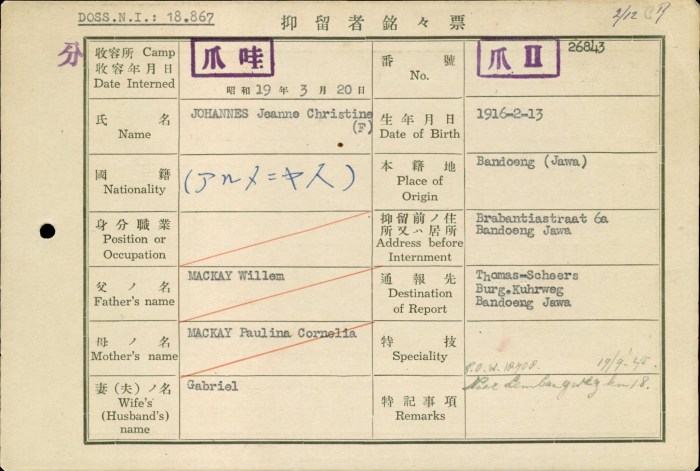 DOSS.N.I.: 18.867
抑留者銘々票
2/12
分
收容所 Camp
收容年月日
Date Interned
爪哇
昭和19年3月20日
番號
No.
爪II
26843
氏名
Name
JOHANNES Jeanne Christine
(F)
生年月日
Date of Birth
1916-2-13
國籍
Nationality
(アルメニヤ人)
本籍地
Place of
Origin
Bandoeng (Jawa)
身分職業
Position or
Occupation
抑留前ノ住
所又ハ居所
Address before
Internment
Brabantiastraat 6a
Bandoeng Jawa
父ノ名
Father's name
MACKAY Willem
通報先
Destination
of Report
Thomas-Scheers
Burg.Kuhrweg
Bandoeng Jawa
母ノ名
Mother's name
MACKAY Paulina Cornelia
特技
Speciality
P.O.W. 18708. 19/9-'45.
妻(夫)ノ名
Wife's
(Husband's)
name
Gabriel
特記事項
Remarks
Lembangweg km 18.